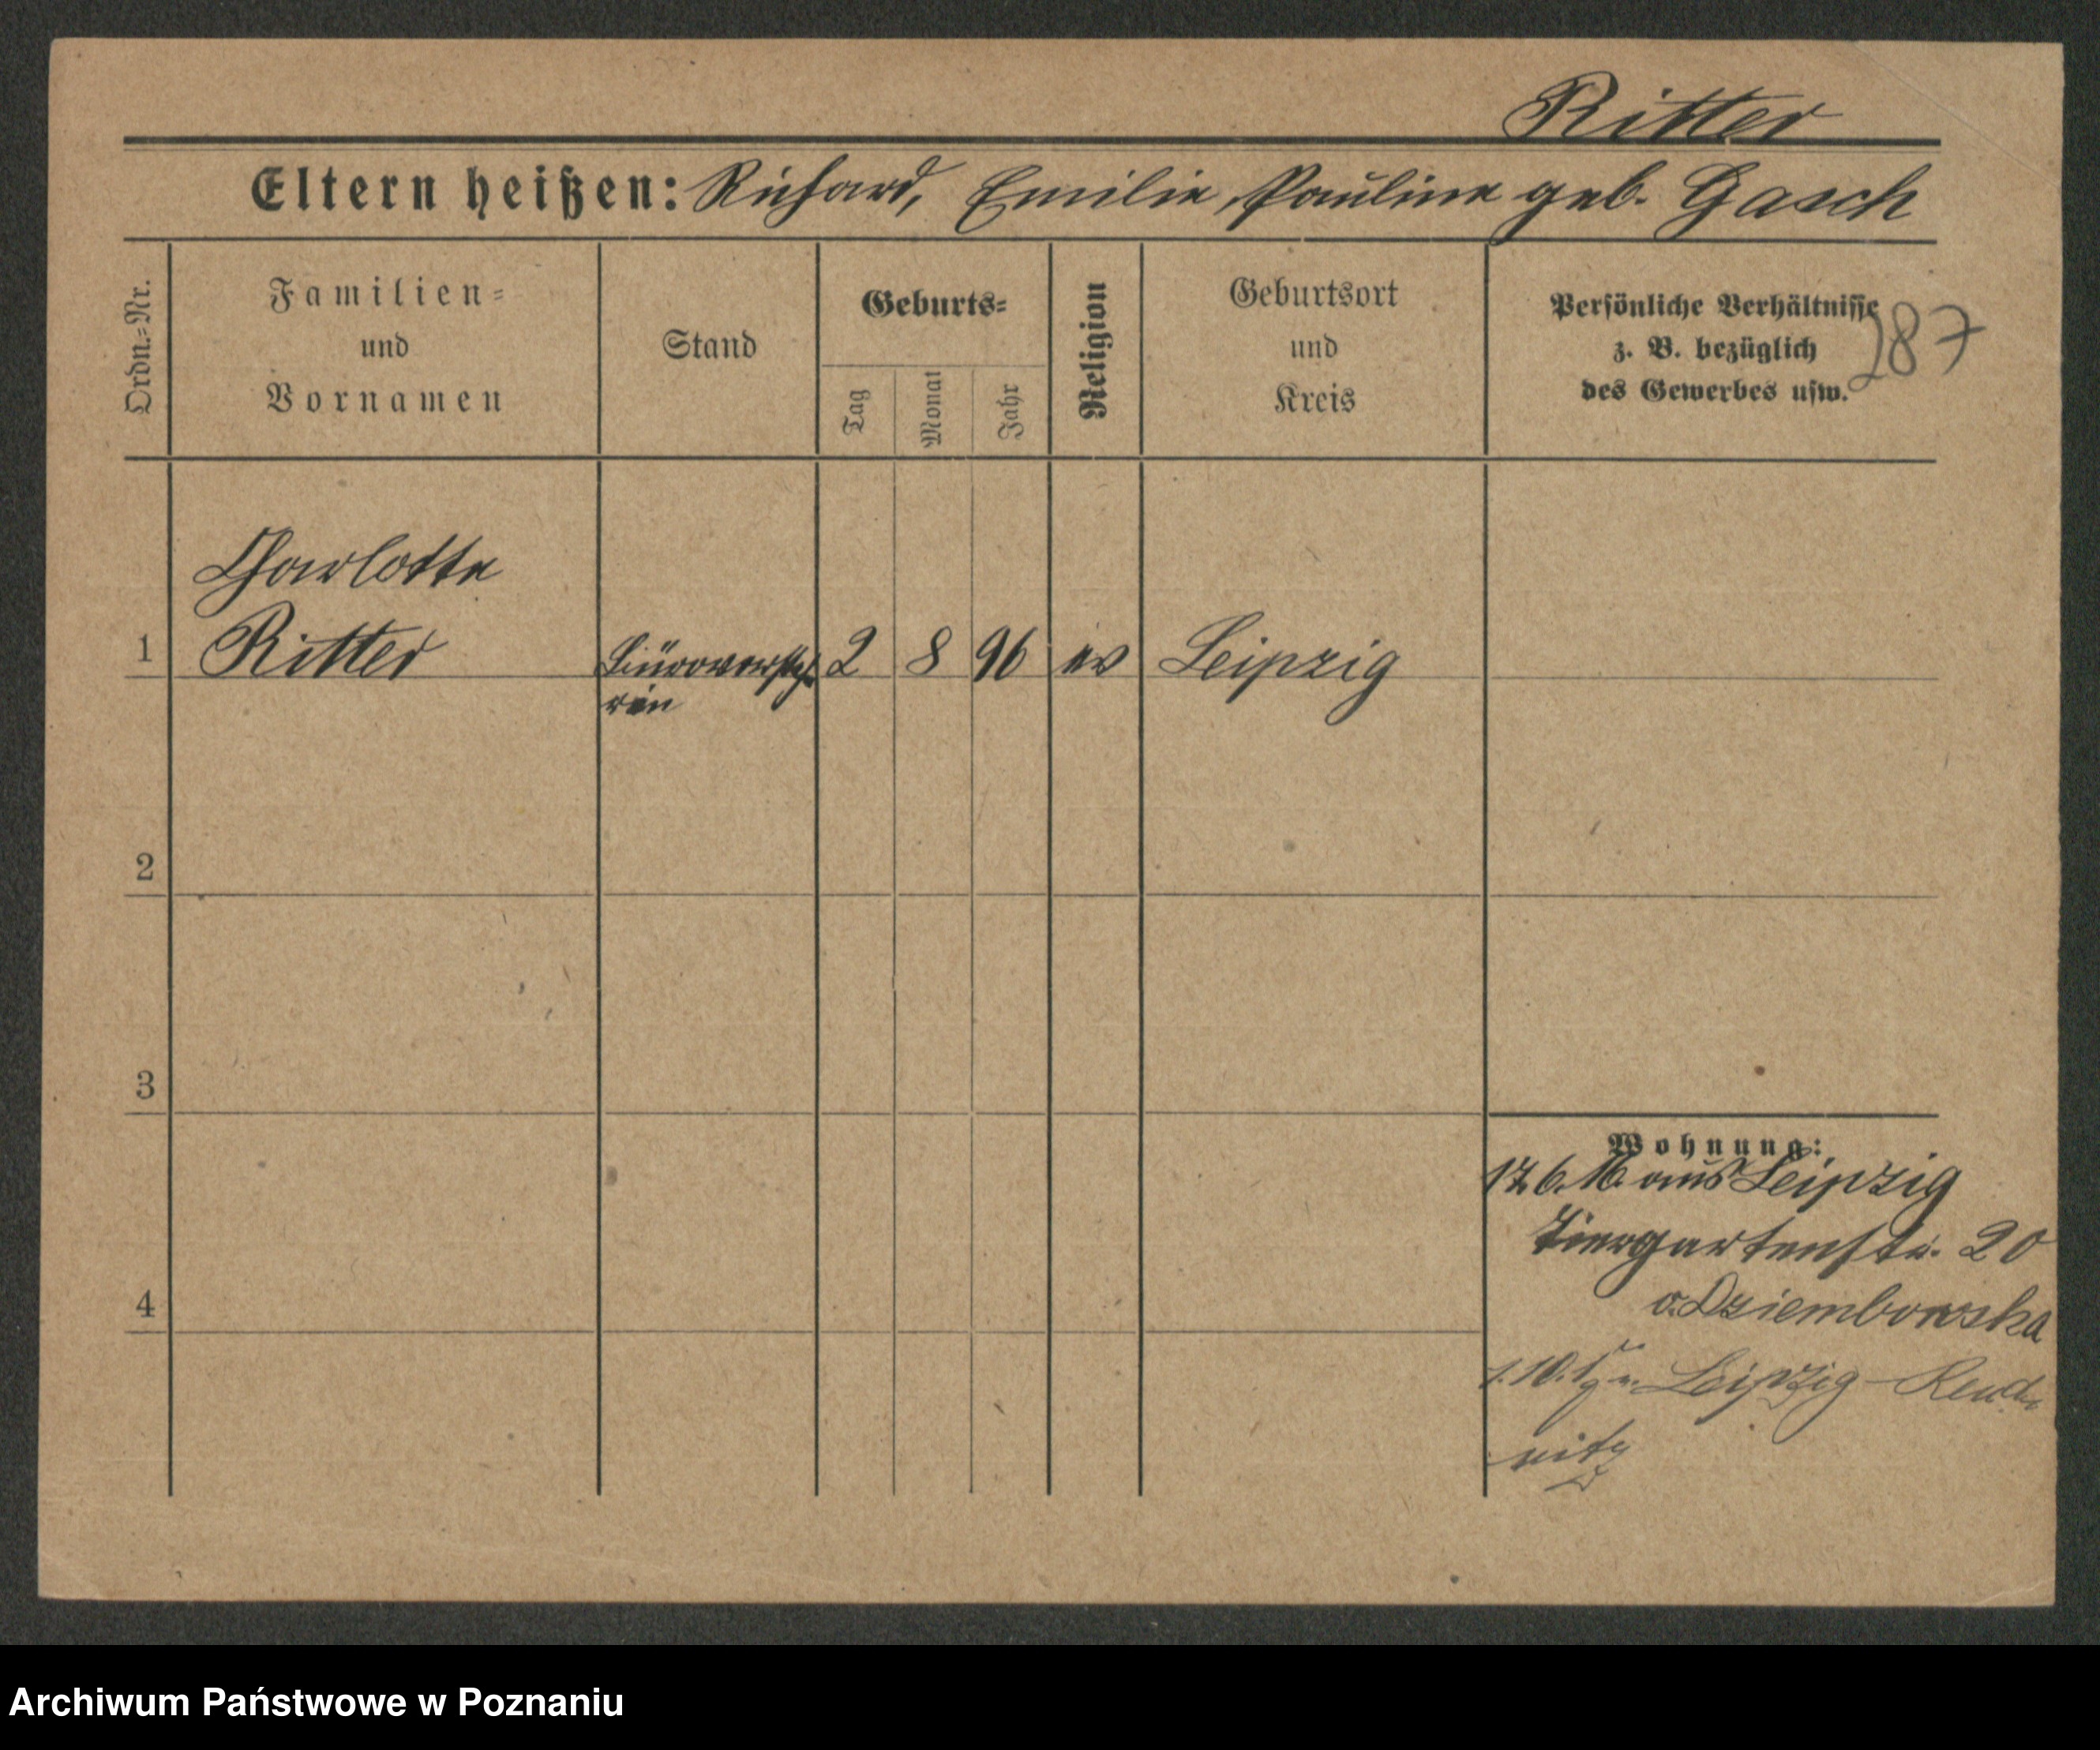 Ritter
Eltern heißen: Richard, Emilie, Pauline geb. Gasch
Ordn.=Nr.
Familien=
und
Vornamen
Stand
Geburts=
Tag
Monat
Jahr
Religion
Geburtsort
und
Kreis
Persönliche Verhältnisse
z. B. bezüglich
des Gewerbes usw.
287
Charlotte
1 Ritter Bürovorsteh= 2 8 96 ev Leipzig
rin
2
3
4
Wohnung:
17.6.16. aus Leipzig
Tiergartenstr. 20
v. Dziembowska
1.10.17 n. Leipzig-Reud=
nitz
Archiwum Państwowe w Poznaniu